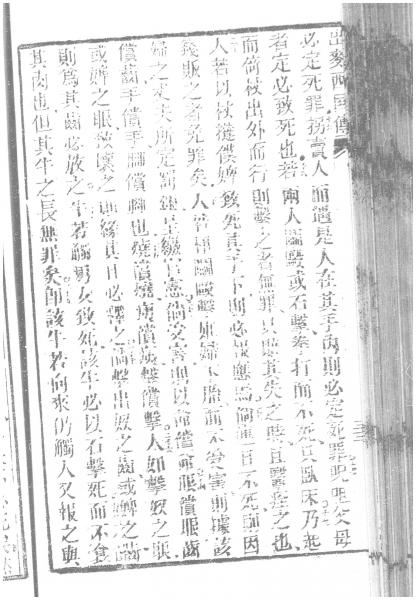 出麥西國傳
必定死罪拐賣人而遇是人在其手內則必定死罪呪咀父母
者定必致死也若兩人鬬毆或石擊拳打而不死其臥床乃起
而倚杖出外而行則擊之者無罪只賠其失之時且醫痊之也
人若以杖撻僕婢致死其手下則必報應焉倘一日不死
錢販之者免罪矣人若相鬬毆擊婦胎而不受害則據該
婦之丈夫所定罰銀呈繳官憲倘受害則以命償命眼償眼齒
償齒手償手腳償腳也燒償燒傷償傷擊償擊人如擊奴之眼
或婢之眼致壞之則緣其目必釋之倘擊出奴之齒或婢之齒
則為其齒必放之牛若觸男女致死該牛必以石擊死而不食
其肉也但其牛之長無罪矣該牛若向來仍觸人又報之與